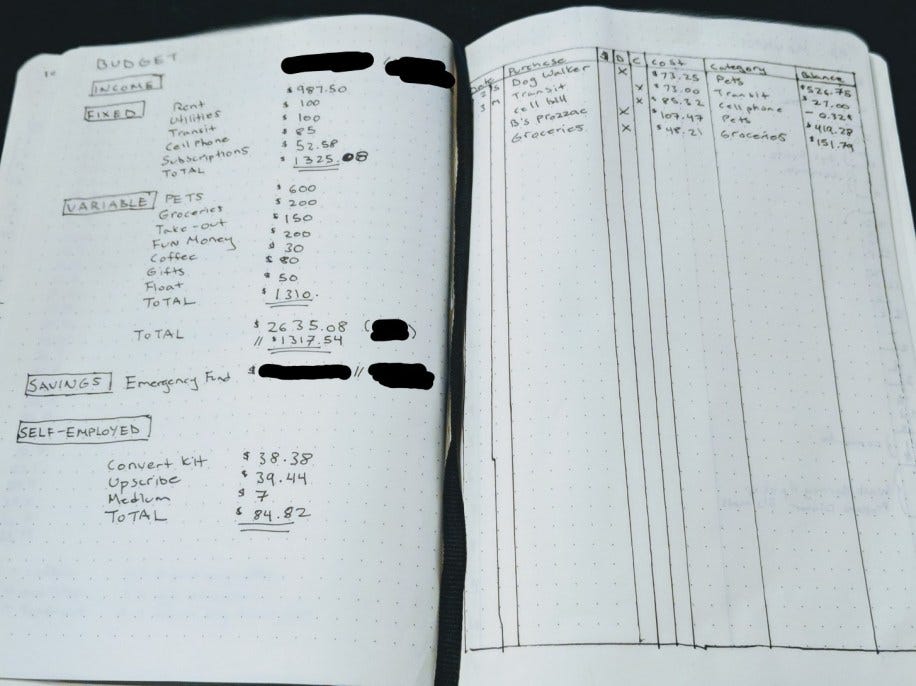 BUDGET
INCOME //
FIXED Rent $987.50
Utilities $100
Transit $100
Cell Phone $85
Subscriptions $52.58
TOTAL $1325.08
VARIABLE PETS $600
Groceries $200
Take-out $150
Fun Money $200
Coffee $30
Gifts $80
Float $50
TOTAL $1310.
TOTAL $2635.08 ( )
// $1317.54
SAVINGS Emergency Fund $ //
SELF-EMPLOYED
Convert Kit $38.38
Upscribe $39.44
Medium $7
TOTAL $84.82
Date Purchase $ D C Cost Category Balance
S Dog Walker X $73.25 Pets $526.75
3 M Transit X $73.00 Transit $27.00
Cell bill X $85.32 Cell phone -0.32¢
B's Prozzac X $107.47 Pets $419.28
Groceries X $48.21 Groceries $151.79